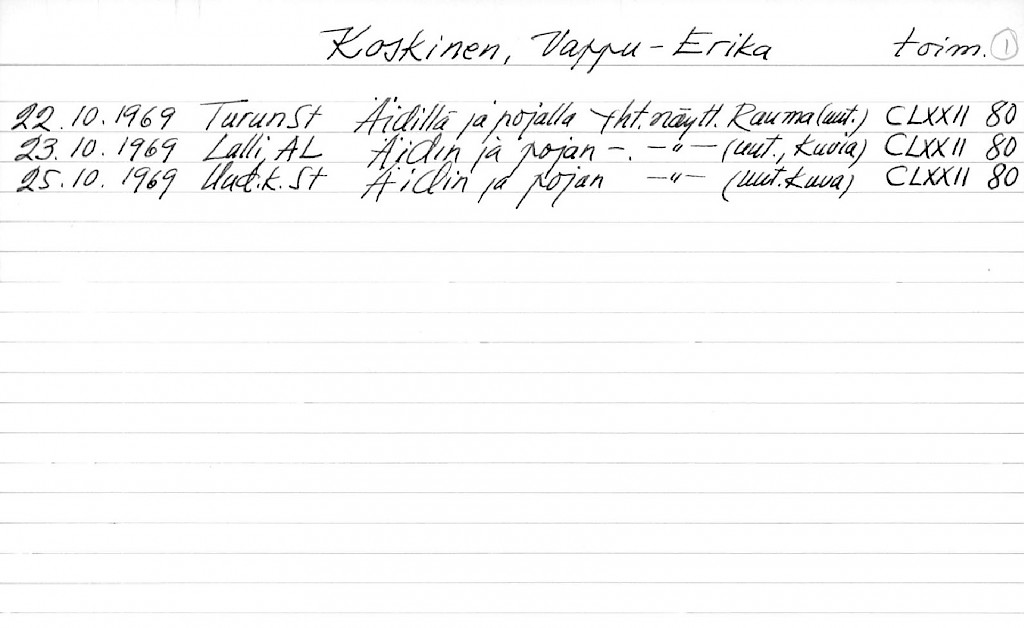 Koskinen, Vappu-Erika toim. 1
22.10.1969 TurunSt Äidillä ja pojalla yht.näytt. Rauma (uut.) CLXXII 80
23.10.1969 Lalli, AL Äidin ja pojan -. -"- (uut., kuvia) CLXXII 80
25.10.1969 Uud.k.St Äidin ja pojan -"- (uut.kuva) CLXXII 80